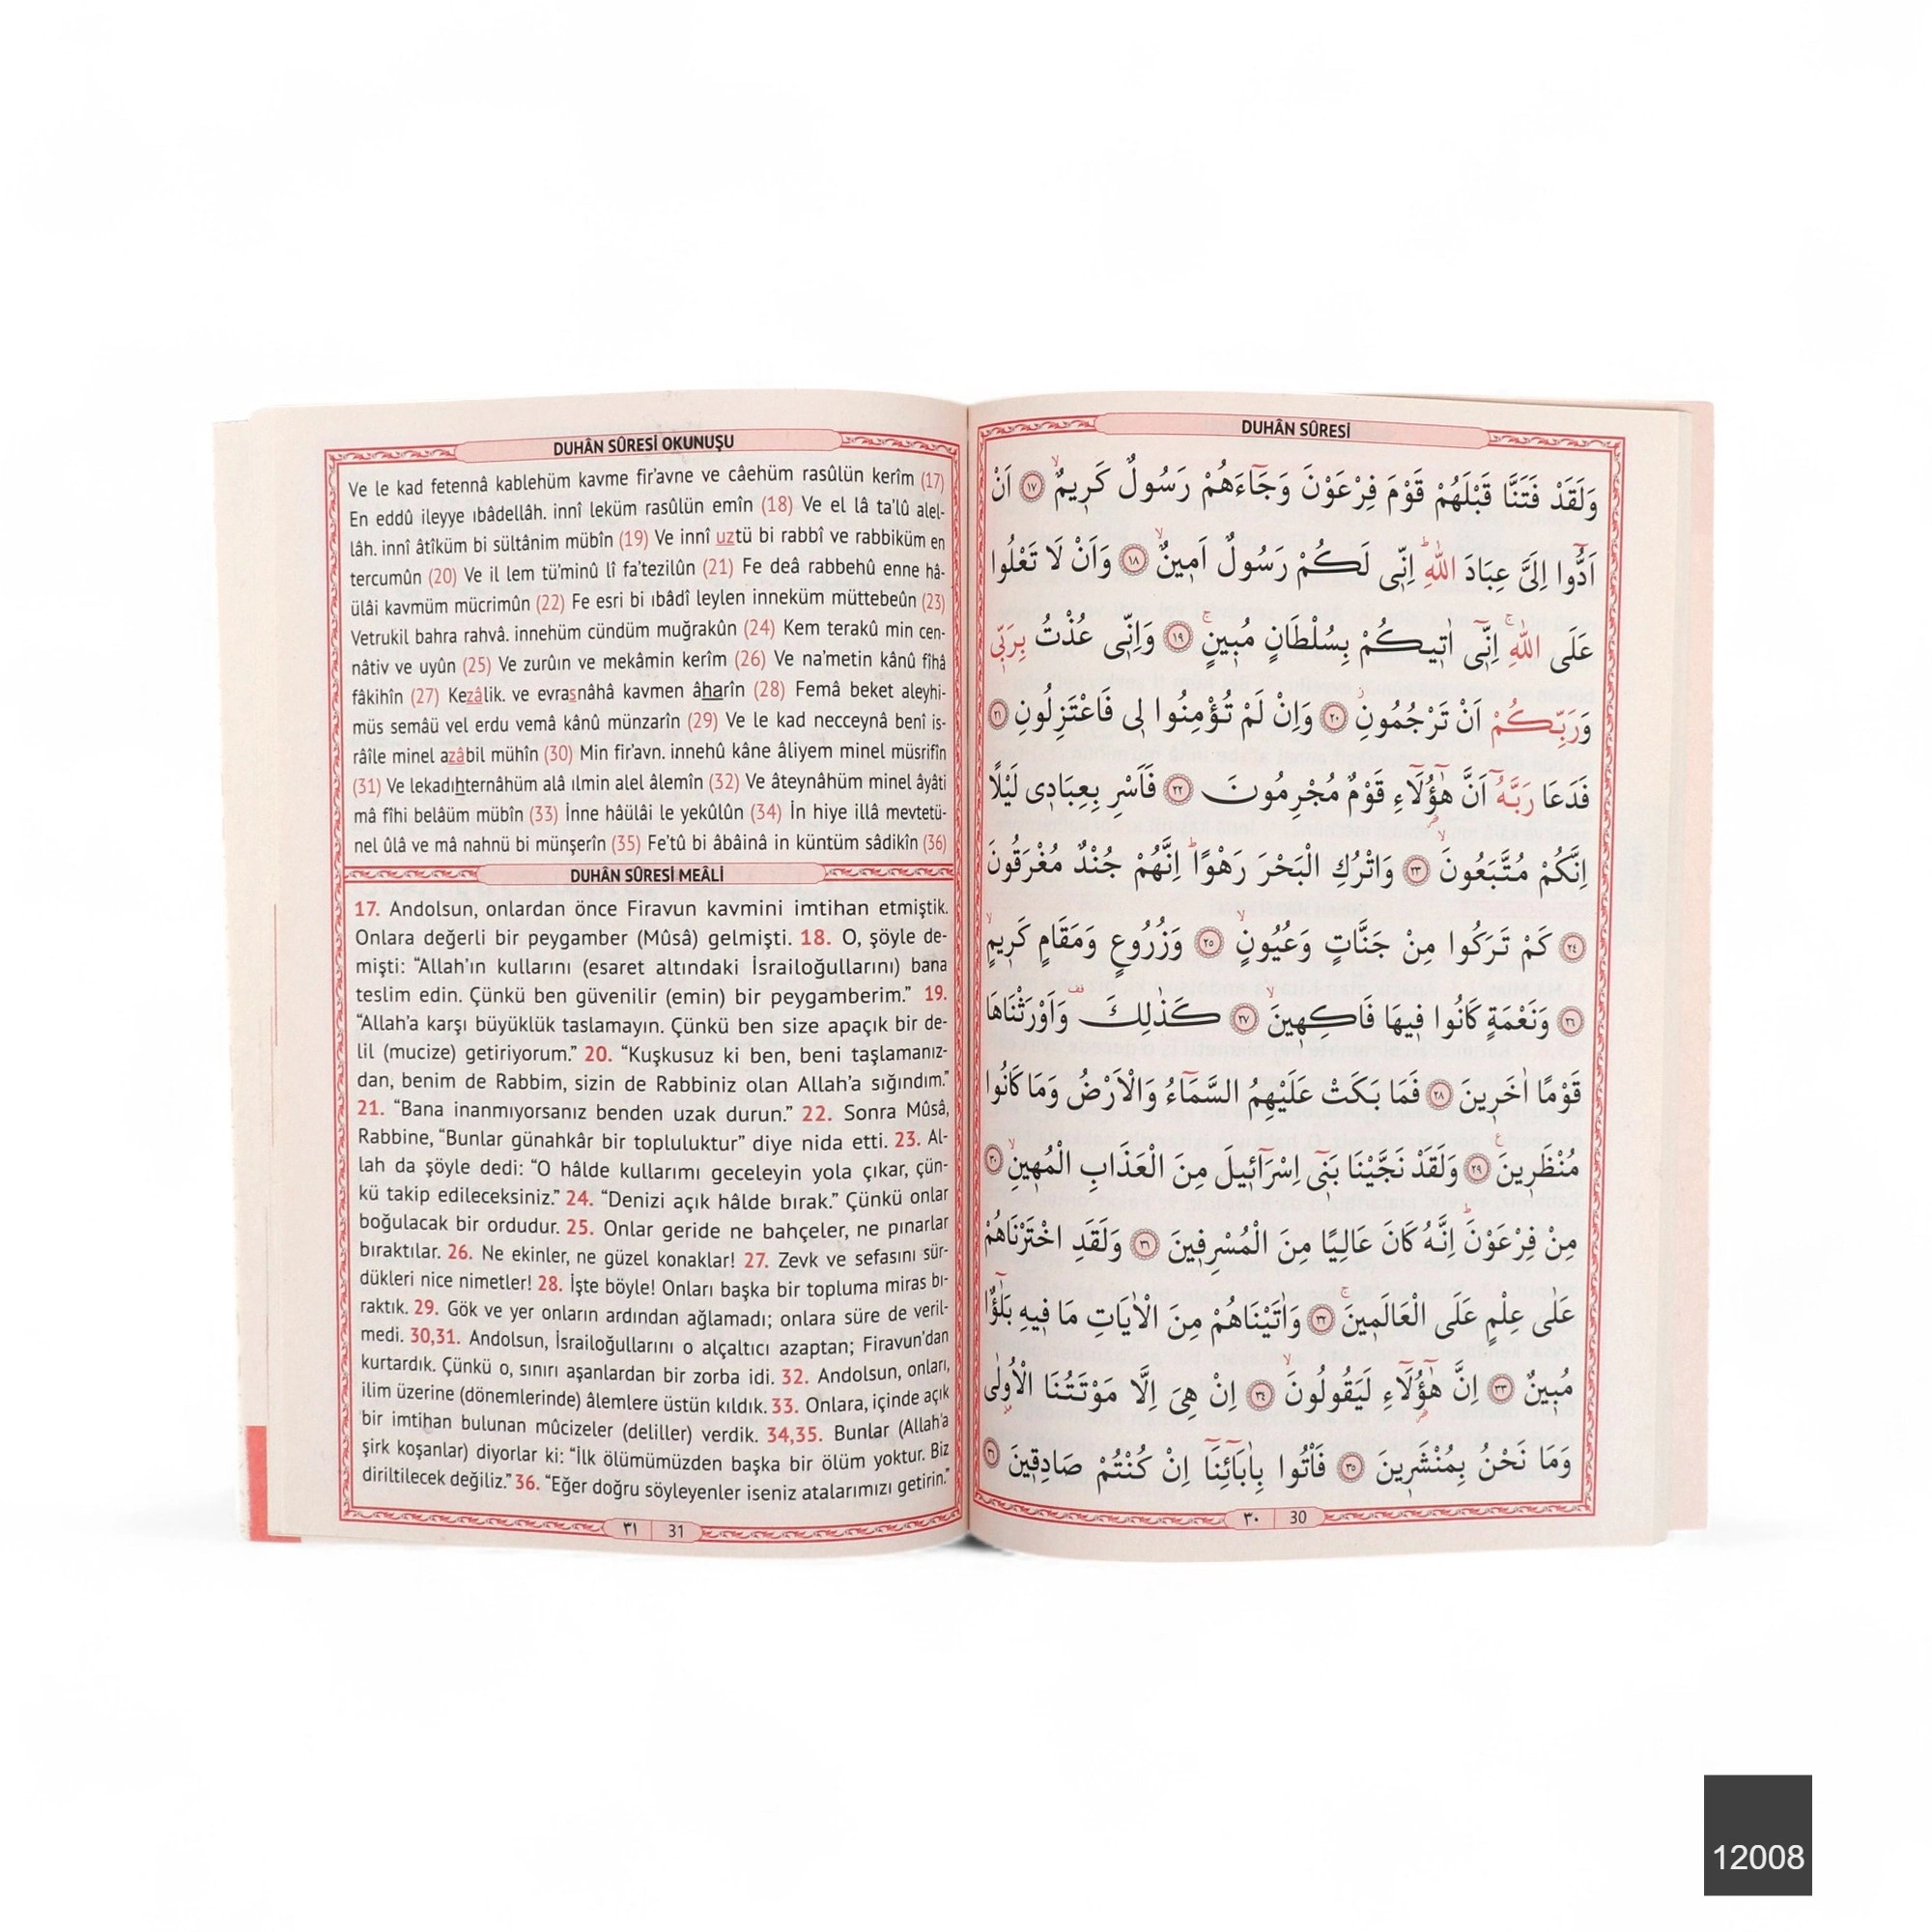 DUHÂN SÛRESİ
وَلَقَدْ فَتَنَّا قَبْلَهُمْ قَوْمَ فِرْعَوْنَ وَجَٓاءَهُمْ رَسُولٌ كَرِيمٌۙ ﴿١٧﴾ اَنْ
اَدُّٓوا اِلَيَّ عِبَادَ اللّٰهِۜ اِنّ۪ي لَكُمْ رَسُولٌ اَم۪ينٌۙ ﴿١٨﴾ وَاَنْ لَا تَعْلُوا
عَلَى اللّٰهِۚ اِنّ۪ٓي اٰت۪يكُمْ بِسُلْطَانٍ مُب۪ينٍۚ ﴿١٩﴾ وَاِنّ۪ي عُذْتُ بِرَبّ۪ي
وَرَبِّكُمْ اَنْ تَرْجُمُونِۘ ﴿٢٠﴾ وَاِنْ لَمْ تُؤْمِنُوا ل۪ي فَاعْتَزِلُونِ ﴿٢١﴾
فَدَعَا رَبَّهُٓ اَنَّ هٰٓؤُ۬لَٓاءِ قَوْمٌ مُجْرِمُونَ ﴿٢٢﴾ فَاَسْرِ بِعِبَاد۪ي لَيْلًا
اِنَّكُمْ مُتَّبَعُونَۙ ﴿٢٣﴾ وَاتْرُكِ الْبَحْرَ رَهْوًاۜ اِنَّهُمْ جُنْدٌ مُغْرَقُونَ
﴿٢٤﴾ كَمْ تَرَكُوا مِنْ جَنَّاتٍ وَعُيُونٍۙ ﴿٢٥﴾ وَزُرُوعٍ وَمَقَامٍ كَر۪يمٍۙ
﴿٢٦﴾ وَنَعْمَةٍ كَانُوا ف۪يهَا فَاكِه۪ينَۙ ﴿٢٧﴾ كَذٰلِكَ وَاَوْرَثْنَاهَا
قَوْمًا اٰخَر۪ينَ ﴿٢٨﴾ فَمَا بَكَتْ عَلَيْهِمُ السَّمَٓاءُ وَالْاَرْضُ وَمَا كَانُوا
مُنْظَر۪ينَ۟ ﴿٢٩﴾ وَلَقَدْ نَجَّيْنَا بَن۪ٓي اِسْرَٓائ۪يلَ مِنَ الْعَذَابِ الْمُه۪ينِۙ ﴿٣٠﴾
مِنْ فِرْعَوْنَۜ اِنَّهُ كَانَ عَالِيًا مِنَ الْمُسْرِف۪ينَ ﴿٣١﴾ وَلَقَدِ اخْتَرْنَاهُمْ
عَلٰى عِلْمٍ عَلَى الْعَالَم۪ينَۚ ﴿٣٢﴾ وَاٰتَيْنَاهُمْ مِنَ الْاٰيَاتِ مَا ف۪يهِ بَلٰٓؤٌ۬ا
مُب۪ينٌ ﴿٣٣﴾ اِنَّ هٰٓؤُ۬لَٓاءِ لَيَقُولُونَۙ ﴿٣٤﴾ اِنْ هِيَ اِلَّا مَوْتَتُنَا الْاُو۫لٰى
وَمَا نَحْنُ بِمُنْشَر۪ينَ ﴿٣٥﴾ فَأْتُوا بِاٰبَٓائِنَٓا اِنْ كُنْتُمْ صَادِق۪ينَ ﴿٣٦﴾
٣٠ 30
DUHÂN SÛRESİ OKUNUŞU
Ve le kad fetennâ kablehüm kavme fir’avne ve câehüm rasûlün kerîm (17)
En eddû ileyye ıbâdellâh. innî leküm rasûlün emîn (18) Ve el lâ ta’lû alel-
lâh. innî âtîküm bi sültânim mübîn (19) Ve innî uztü bi rabbî ve rabbiküm en
tercumûn (20) Ve il lem tü’minû lî fa’tezilûn (21) Fe deâ rabbehû enne hâ-
ülâi kavmüm mücrimûn (22) Fe esri bi ıbâdî leylen inneküm müttebeûn (23)
Vetrukil bahra rahvâ. innehüm cündüm muğrakûn (24) Kem terakû min cen-
nâtiv ve uyûn (25) Ve zurûın ve mekâmin kerîm (26) Ve na’metin kânû fîhâ
fâkihîn (27) Kezâlik. ve evrasnâhâ kavmen âharîn (28) Femâ beket aleyhi-
müs semâü vel erdu vemâ kânû münzarîn (29) Ve le kad necceynâ benî is-
râîle minel azâbil mühîn (30) Min fir’avn. innehû kâne âliyem minel müsrifîn
(31) Ve lekadıhternâhüm alâ ılmin alel âlemîn (32) Ve âteynâhüm minel âyâti
mâ fîhi belâüm mübîn (33) İnne hâülâi le yekûlûn (34) İn hiye illâ mevtetü-
nel ûlâ ve mâ nahnü bi münşerîn (35) Fe’tû bi âbâinâ in küntüm sâdikîn (36)
DUHÂN SÛRESİ MEÂLİ
17. Andolsun, onlardan önce Firavun kavmini imtihan etmiştik.
Onlara değerli bir peygamber (Mûsâ) gelmişti. 18. O, şöyle de-
mişti: “Allah’ın kullarını (esaret altındaki İsrailoğullarını) bana
teslim edin. Çünkü ben güvenilir (emin) bir peygamberim.” 19.
“Allah’a karşı büyüklük taslamayın. Çünkü ben size apaçık bir de-
lil (mucize) getiriyorum.” 20. “Kuşkusuz ki ben, beni taşlamanız-
dan, benim de Rabbim, sizin de Rabbiniz olan Allah’a sığındım.”
21. “Bana inanmıyorsanız benden uzak durun.” 22. Sonra Mûsâ,
Rabbine, “Bunlar günahkâr bir topluluktur” diye nida etti. 23. Al-
lah da şöyle dedi: “O hâlde kullarımı geceleyin yola çıkar, çün-
kü takip edileceksiniz.” 24. “Denizi açık hâlde bırak.” Çünkü onlar
boğulacak bir ordudur. 25. Onlar geride ne bahçeler, ne pınarlar
bıraktılar. 26. Ne ekinler, ne güzel konaklar! 27. Zevk ve sefasını sür-
dükleri nice nimetler! 28. İşte böyle! Onları başka bir topluma miras bı-
raktık. 29. Gök ve yer onların ardından ağlamadı; onlara süre de veril-
medi. 30,31. Andolsun, İsrailoğullarını o alçaltıcı azaptan; Firavun’dan
kurtardık. Çünkü o, sınırı aşanlardan bir zorba idi. 32. Andolsun, onları,
ilim üzerine (dönemlerinde) âlemlere üstün kıldık. 33. Onlara, içinde açık
bir imtihan bulunan mûcizeler (deliller) verdik. 34,35. Bunlar (Allah’a
şirk koşanlar) diyorlar ki: “İlk ölümümüzden başka bir ölüm yoktur. Biz
diriltilecek değiliz.” 36. “Eğer doğru söyleyenler iseniz atalarımızı getirin.”
٣١ 31
12008